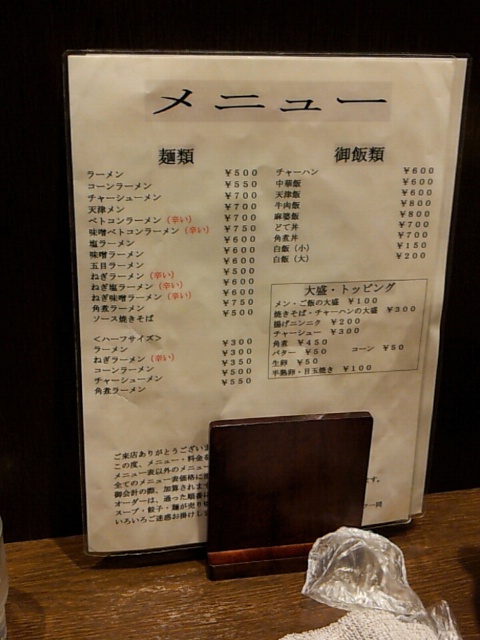 メニュー
麺類
ラーメン ￥500
コーンラーメン ￥550
チャーシューメン ￥700
天津メン ￥700
ベトコンラーメン（辛い） ￥700
味噌ベトコンラーメン（辛い） ￥750
塩ラーメン ￥600
味噌ラーメン ￥600
五目ラーメン ￥600
ねぎラーメン（辛い） ￥500
ねぎ塩ラーメン（辛い） ￥600
ねぎ味噌ラーメン（辛い） ￥600
角煮ラーメン ￥750
ソース焼きそば ￥500
＜ハーフサイズ＞
ラーメン ￥300
ねぎラーメン（辛い） ￥300
コーンラーメン ￥350
チャーシューメン ￥500
角煮ラーメン ￥550
御飯類
チャーハン ￥600
中華飯 ￥600
天津飯 ￥600
牛肉飯 ￥800
麻婆飯 ￥800
どて丼 ￥700
角煮丼 ￥700
白飯（小） ￥150
白飯（大） ￥200
大盛・トッピング
メン・ご飯の大盛 ￥100
焼きそば・チャーハンの大盛 ￥300
揚げニンニク ￥200
チャーシュー ￥300
角煮 ￥450
バター ￥50 コーン ￥50
生卵 ￥50
半熟卵・目玉焼き ￥100
ご来店ありがとうござい
この度、メニュー・料金
メニュー表以外のメニュ
全てのメニュー表価格に
御会計の際、加算されま す。
オーダーは、通った順番
スープ・餃子・麺が売り
いろいろご迷惑お掛けし 一同